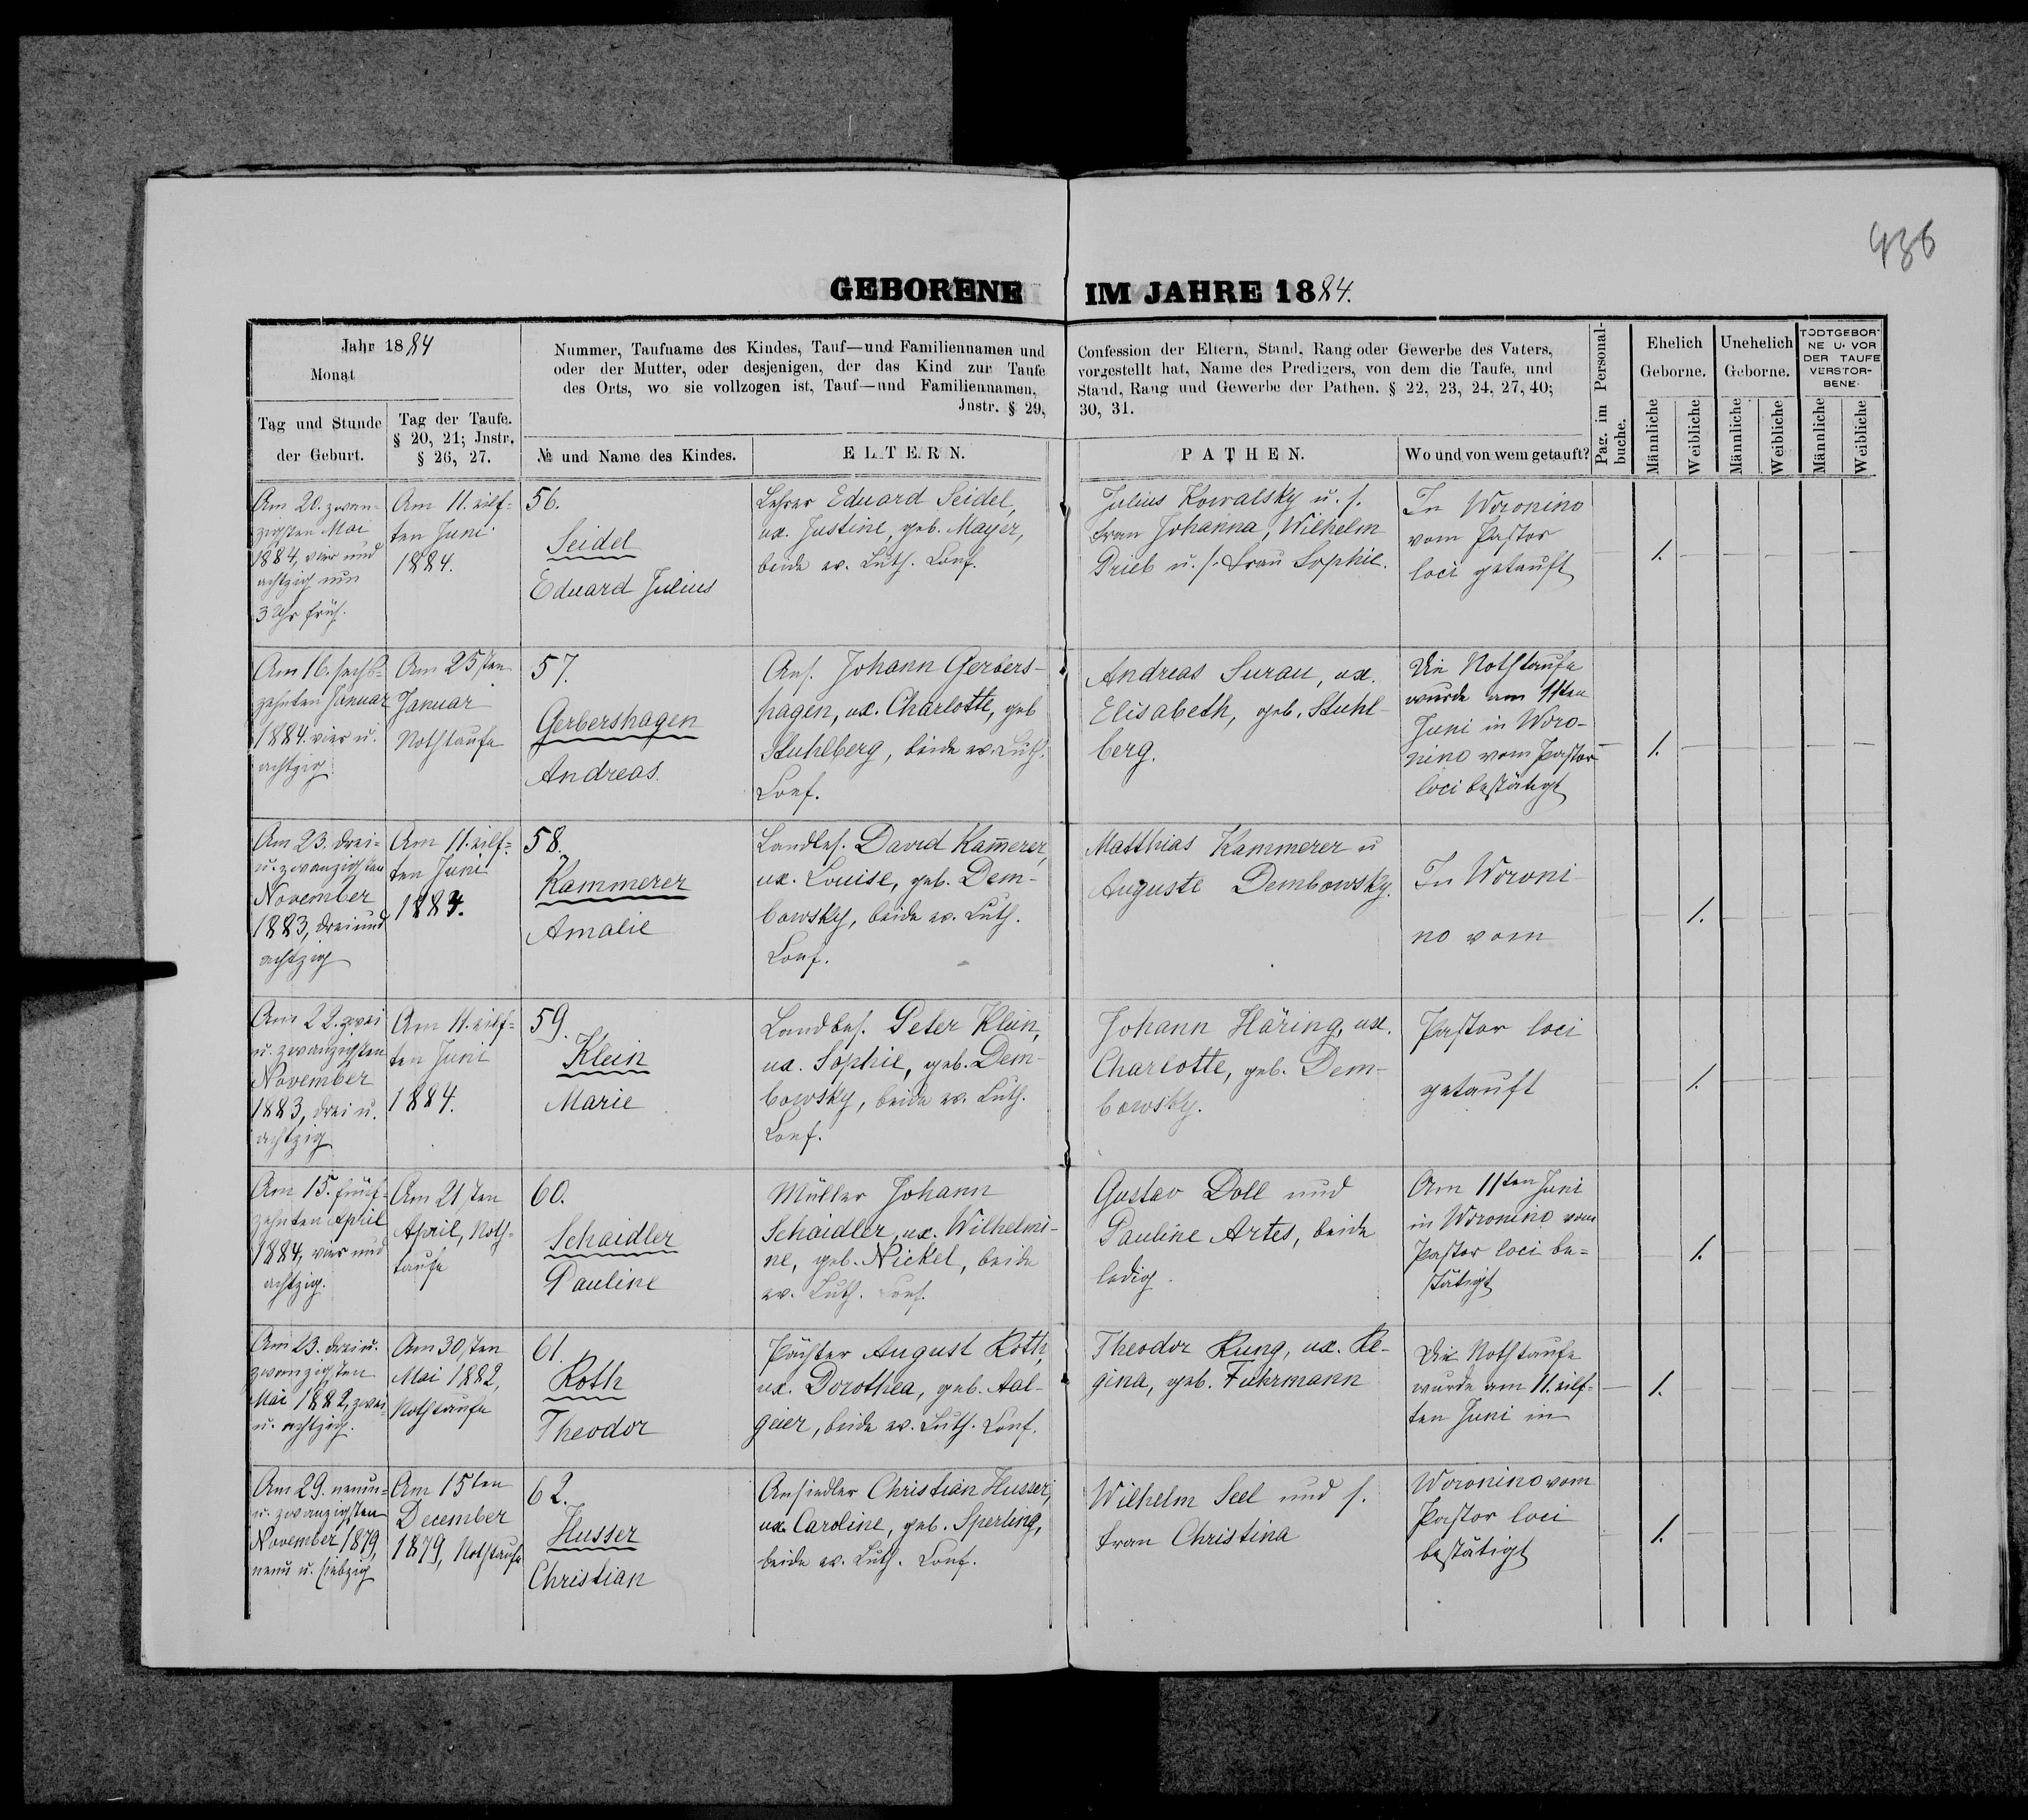 436
GEBORENE IM JAHRE 1884.
Jahr 1884
Monat
Tag und Stunde
der Geburt.
Tag der Taufe.
§ 20, 21; Jnstr.
§ 26, 27.
Nummer, Taufname des Kindes, Tauf—und Familiennamen und
oder der Mutter, oder desjenigen, der das Kind zur Taufe
des Orts, wo sie vollzogen ist, Tauf—und Familiennamen,
Jnstr. § 29,
№ und Name des Kindes.
ELTERN.
Confession der Eltern, Stand, Rang oder Gewerbe des Vaters,
vorgestellt hat, Name des Predigers, von dem die Taufe, und
Stand, Rang und Gewerbe der Pathen. § 22, 23, 24, 27, 40;
30, 31.
PATHEN.
Wo und von wem getauft?
Pag. im Personal-
buche.
Ehelich
Geborne.
Unehelich
Geborne.
TODTGEBOR-
NE U. VOR
DER TAUFE
VERSTOR-
BENE
Männliche
Weibliche
Männliche
Weibliche
Männliche
Weibliche
Am 20. zwan-
zigsten Mai
1884, vier und
achtzig um
3 Uhr früh.
Am 11. eilf-
ten Juni
1884.
56.
Seidel
Eduard Julius
Lehrer Eduard Seidel,
ux. Justine, geb. Mayer,
beide ev. Luth. Conf.
Julius Kowalsky u. s.
Frau Johanna, Wilhelm
Prieb u. s. Frau Sophie.
In Woronino
vom Pastor
loci getauft
1.
Am 16. sech-
zehnten Januar
1884. vier u.
achtzig
Am 25sten
Januar
Nothtaufe
57.
Gerbershagen
Andreas.
Ans. Johann Gerbers-
hagen, ux. Charlotte, geb
Stuhlberg, beide ev. Luth.
Conf.
Andreas Surau, ux.
Elisabeth, geb. Stuhl-
berg.
Die Nothtaufe
wurde am 11ten
Juni in Woro-
nino vom Pastor
loci bestätigt
1.
Am 23. drei-
u. zwanzigsten
November
1883, drei und
achtzig
Am 11. eilf-
ten Juni
1884.
58.
Kammerer
Amalie
Landbes. David Kam̅erer,
ux. Louise, geb. Dem-
bowsky, beide ev. Luth.
Conf.
Matthias Kammerer u
Auguste Dembowsky.
In Woroni
no vom
1.
Am 22. zwei
u. zwanzigsten
November
1883, drei u.
achtzig
Am 11. eilf-
ten Juni
1884.
59.
Klein
Marie
Landbes. Peter Klein,
ux. Sophie, geb. Dem-
bowsky, beide ev. Luth.
Conf.
Johann Häring, ux.
Charlotte, geb. Dem-
bowsky.
Pastor loci
getauft
1.
Am 15. fünf-
zehnten April
1884, vier und
achtzig.
Am 21sten
April, Noth-
taufe
60.
Schaidler
Pauline
Müller Johann
Schaidler, ux. Wilhelmi-
ne, geb. Nickel, beide
ev. Luth. Conf.
Gustav Doll und
Pauline Artes, beide
ledig.
Am 11ten Juni
in Woronino vom
Pastor loci be-
stätigt
1.
Am 23. drei u.
zwanzigsten
Mai 1882, zwei
u. achtzig.
Am 30sten
Mai 1882,
Nothtaufe
61.
Roth
Theodor
Pächter August Roth,
ux. Dorothea, geb. Aal-
geier, beide ev. Luth. Conf.
Theodor Rung, ux. Re-
gina, geb. Fuhrmann
Die Nothtaufe
wurde am 11. eilf-
ten Juni in
1.
Am 29. neun-
u. zwanzigsten
November 1879,
neun u. siebzig
Am 15ten
December
1879, Nothtaufe
62.
Husser
Christian
Ansiedler Christian Husser,
ux. Caroline, geb. Sperling,
beide ev. Luth. Conf.
Wilhelm Seel und s.
Frau Christina
Woronino vom
Pastor loci
bestätigt
1.